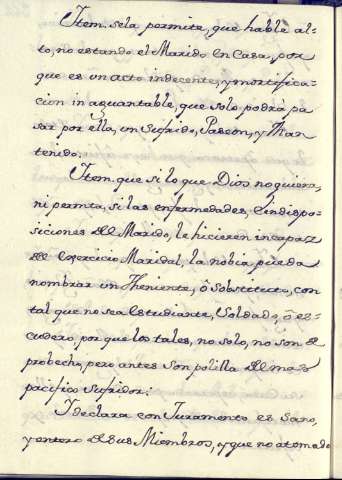 Item. sela permite, que hable al-
to, no estando el Marido en Casa, por
que es un acto indecente, y mortifica-
cion inaguantable, que solo podrá pa
sar por ella, un Sufrido, Paseon, y Man
tenido.
Item. que si lo que Dios no quiera,
ni permita, si las enfermedades, è indispo-
siciones del Marido, le hicieren incapaz
del exercicio Maridal, la nobia pueda
nombrar un Theniente, ô Sobstituto, con
tal que no sea Estudiante, Soldado, ô es-
cudero, por que los tales, no solo, no son de
probecho, pero antes son polilla del mas
pacifico sufridor:
I declara con Juramento es Sano,
y entero de sus Miembros, y que no a tomado